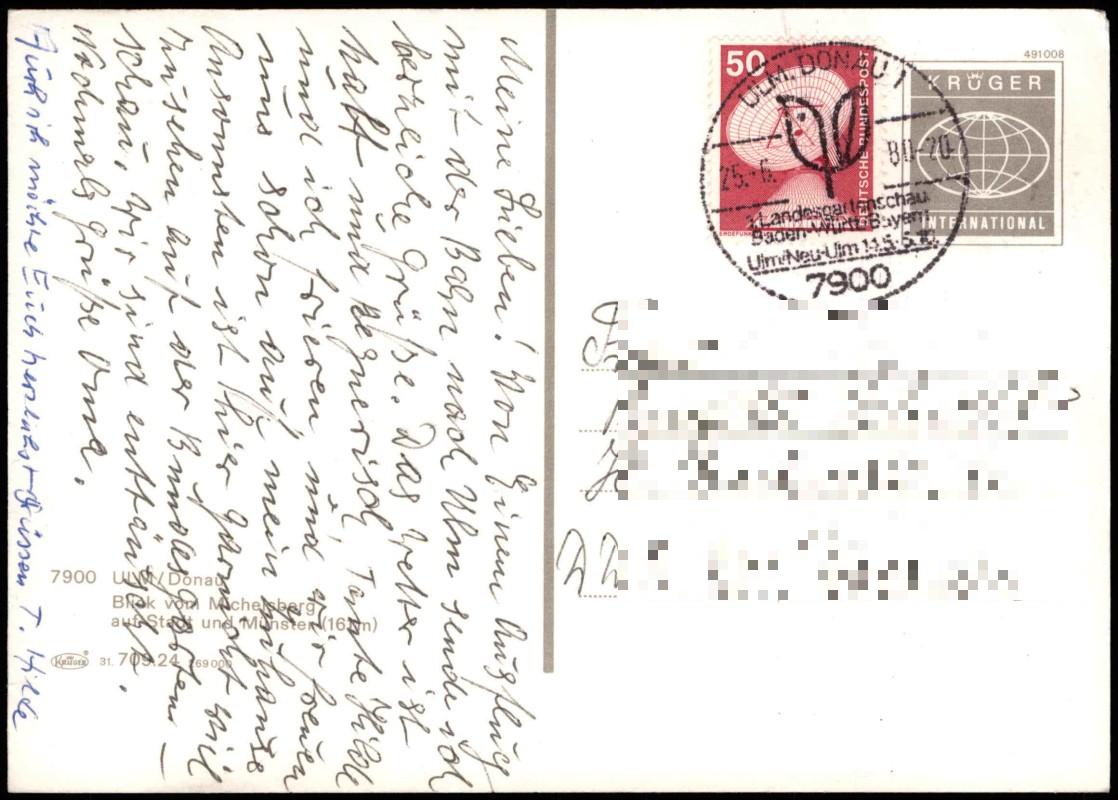 Meine Lieben! Von Einem Ausflug
mit der Bahn nach Ulm sende ich
herzliche Grüße. Das Wetter ist
kalt und regnerisch, Tante Hilde
und ich frieren, und wir freuen
uns schon auf mein Zuhause
Ansonsten ist hier garnicht viel
zu sehen auf der Bundesgarten-
schau, wir sind enttäuscht.
Nochmals Grüße Oma.
Auch ich möchte Euch herzlichst grüssen T. Hilde
7900 ULM/Donau
Blick vom Michelsberg
auf Stadt und Münster (161m)
KRÜGER 31. 709.24 269000
50
DEUTSCHE BUNDESPOST
ULM, DONAU 1
25.-6. 80.-20
Landesgartenschau
Baden-Württ-Bayern
Ulm/Neu-Ulm
7900
491008
KRÜGER
INTERNATIONAL